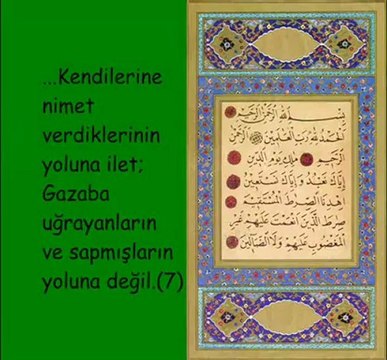 ...Kendilerine
nimet
verdiklerinin
yoluna ilet;
Gazaba
uğrayanların
ve sapmışların
yoluna değil.(7)
بِسْمِ اللّٰهِ الرَّحْمٰنِ الرَّحِيمِ
اَلْحَمْدُ لِلّٰهِ رَبِّ الْعَالَمِينَ اَلرَّحْمٰنِ
الرَّحِيمِ مَالِكِ يَوْمِ الدِّينِ
اِيَّاكَ نَعْبُدُ وَاِيَّاكَ نَسْتَعِينُ
اِهْدِنَا الصِّرَاطَ الْمُسْتَقِيمَ
صِرَاطَ الَّذِينَ اَنْعَمْتَ عَلَيْهِمْ غَيْرِ
الْمَغْضُوبِ عَلَيْهِمْ وَلَا الضَّالِّينَ